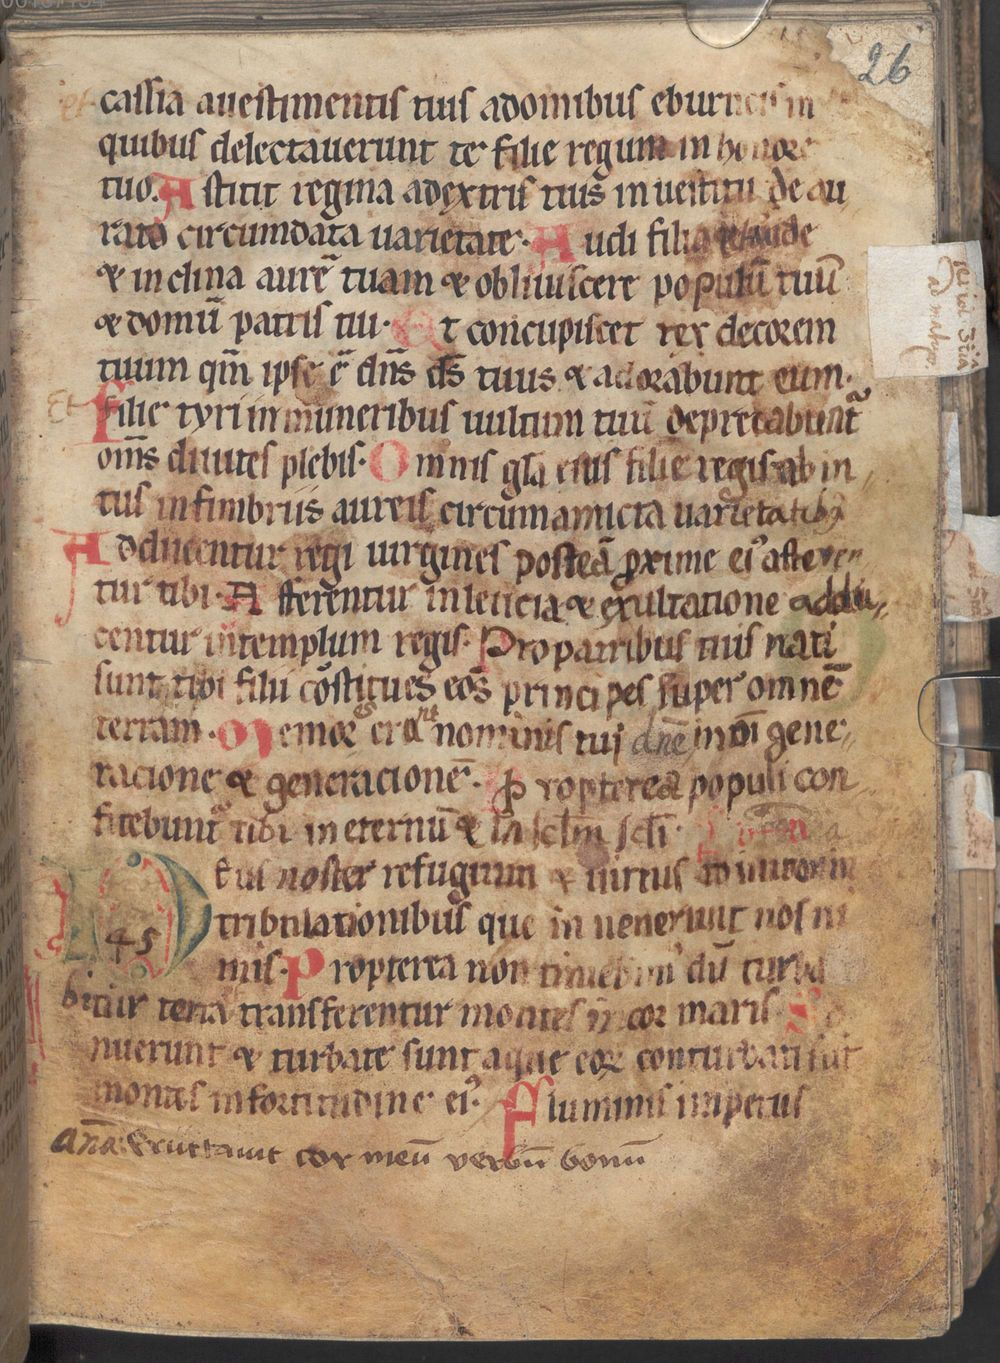 26
et cassia auestimentis tuis adomibus eburneis in
quibus delectauerunt te filie regum in honore
tuo. Astitit regina adextris tuis in uestitu de au
rato circumdata uarietate. Audi filia et uide
& inclina aurē tuam & obliuiscere populū tuū
& domū patris tui. Et concupiscet rex decorem
tuum qm̄ ipse ē dn̄s ds̄ tuus & adorabunt eum.
Et filie tyri in muneribus uultum tuū deprecabunt᷑
om̄s diuites plebis. Omnis gl̄a eius filie regis ab in
tus in fimbriis aureis circumamicta uarietatibꝫ
Adducentur regi uirgines posteā ꝓxime eiꝰ afferen
tur tibi. Afferentur in leticia & exultatione addu
centur in templum regis. Pro patribus tuis nati
sunt tibi filii cōstitues eos principes super omnē
terram. Memor erant nominis tui dn̄e in om̄i gene
racione & generacionē. Propterea populi con
fitebunt᷑ tibi in eternū & in sclm̄ scl̄i.
45
Deus noster refugium & uirtus adiutor in
tribulationibus que in uenerunt nos ni
mis. Propterea non timebim᷒ dū turba
bitur terra & transferentur montes in cor maris. So
nuerunt & turbate sunt aque eoꝝ conturbati sūt
montes in fortitudine eiꝰ. Fluminis impetus
an̄a: Eructauit cor meū verbū bonū